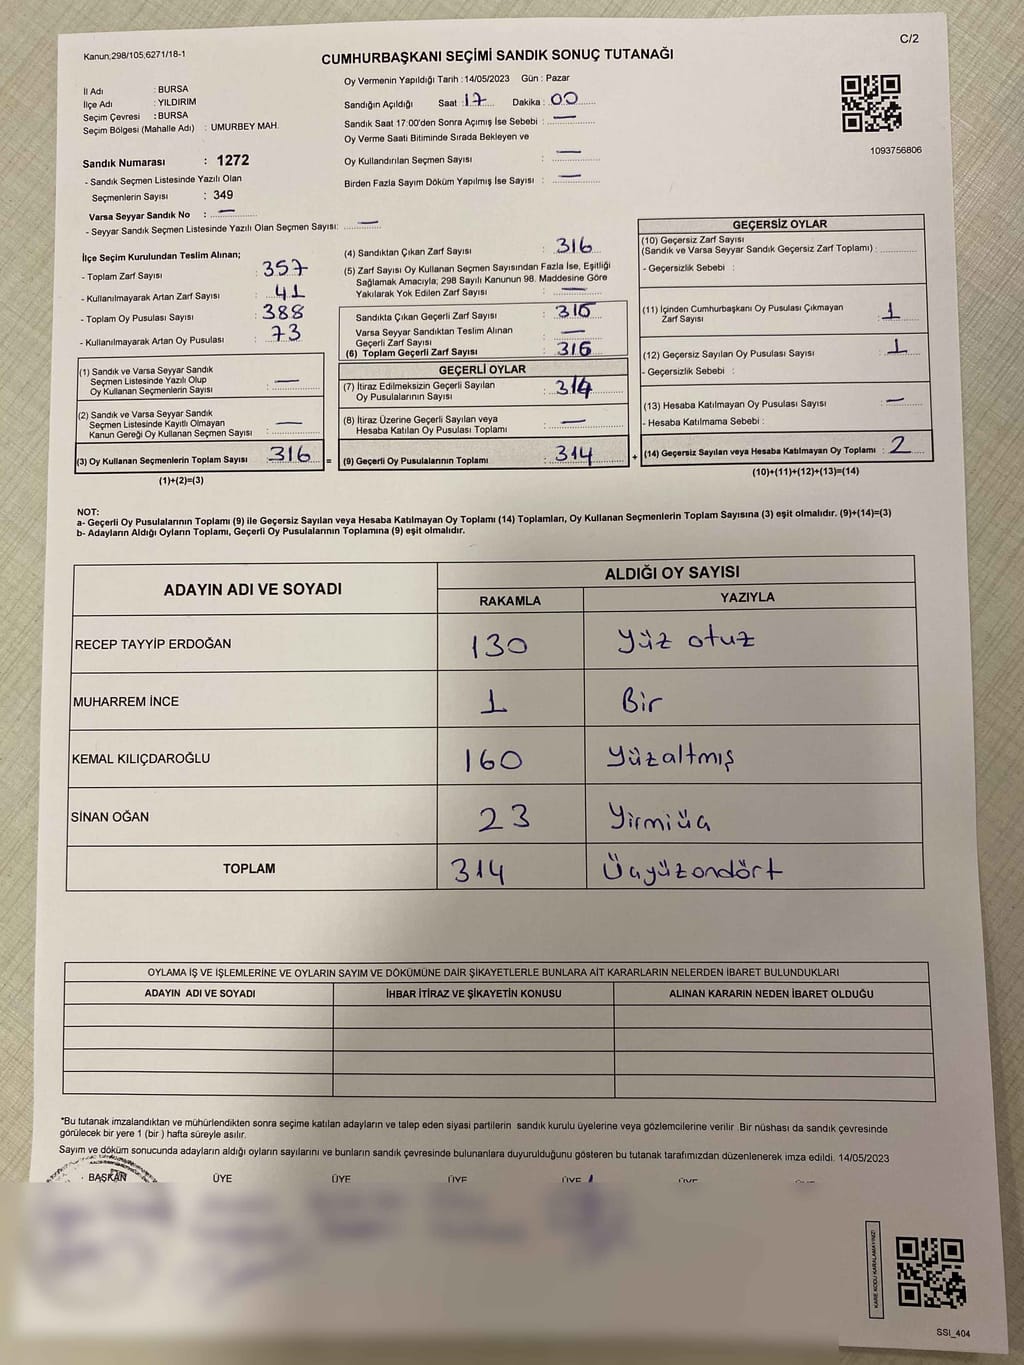 Kanun;298/105;6271/18-1
C/2
CUMHURBAŞKANI SEÇİMİ SANDIK SONUÇ TUTANAĞI
İl Adı : BURSA
İlçe Adı : YILDIRIM
Seçim Çevresi : BURSA
Seçim Bölgesi (Mahalle Adı) : UMURBEY MAH.
Sandık Numarası : 1272
- Sandık Seçmen Listesinde Yazılı Olan
Seçmenlerin Sayısı : 349
Varsa Seyyar Sandık No : —
- Seyyar Sandık Seçmen Listesinde Yazılı Olan Seçmen Sayısı: —
Oy Vermenin Yapıldığı Tarih :14/05/2023 Gün : Pazar
Sandığın Açıldığı Saat : 17 Dakika : 00
Sandık Saat 17:00'den Sonra Açımış İse Sebebi : —
Oy Verme Saati Bitiminde Sırada Bekleyen ve
Oy Kullandırılan Seçmen Sayısı : —
Birden Fazla Sayım Döküm Yapılmış İse Sayısı : —
1093756806
İlçe Seçim Kurulundan Teslim Alınan;
- Toplam Zarf Sayısı : 357
- Kullanılmayarak Artan Zarf Sayısı : 41
- Toplam Oy Pusulası Sayısı : 388
- Kullanılmayarak Artan Oy Pusulası : 73
(1) Sandık ve Varsa Seyyar Sandık
Seçmen Listesinde Yazılı Olup
Oy Kullanan Seçmenlerin Sayısı : —
(2) Sandık ve Varsa Seyyar Sandık
Seçmen Listesinde Kayıtlı Olmayan
Kanun Gereği Oy Kullanan Seçmen Sayısı : —
(3) Oy Kullanan Seçmenlerin Toplam Sayısı : 316
(1)+(2)=(3)
=
(4) Sandıktan Çıkan Zarf Sayısı : 316
(5) Zarf Sayısı Oy Kullanan Seçmen Sayısından Fazla İse, Eşitliği
Sağlamak Amacıyla; 298 Sayılı Kanunun 98. Maddesine Göre
Yakılarak Yok Edilen Zarf Sayısı : —
Sandıkta Çıkan Geçerli Zarf Sayısı : 316
Varsa Seyyar Sandıktan Teslim Alınan
Geçerli Zarf Sayısı : —
(6) Toplam Geçerli Zarf Sayısı : 316
GEÇERLİ OYLAR
(7) İtiraz Edilmeksizin Geçerli Sayılan
Oy Pusulalarının Sayısı : 314
(8) İtiraz Üzerine Geçerli Sayılan veya
Hesaba Katılan Oy Pusulası Toplamı : —
(9) Geçerli Oy Pusulalarının Toplamı : 314
+
GEÇERSİZ OYLAR
(10) Geçersiz Zarf Sayısı
(Sandık ve Varsa Seyyar Sandık Geçersiz Zarf Toplamı) :
- Geçersizlik Sebebi :
(11) İçinden Cumhurbaşkanı Oy Pusulası Çıkmayan
Zarf Sayısı : 1
(12) Geçersiz Sayılan Oy Pusulası Sayısı : 1
- Geçersizlik Sebebi :
(13) Hesaba Katılmayan Oy Pusulası Sayısı : —
- Hesaba Katılmama Sebebi :
(14) Geçersiz Sayılan veya Hesaba Katılmayan Oy Toplamı : 2
(10)+(11)+(12)+(13)=(14)
NOT:
a- Geçerli Oy Pusulalarının Toplamı (9) ile Geçersiz Sayılan veya Hesaba Katılmayan Oy Toplamı (14) Toplamları, Oy Kullanan Seçmenlerin Toplam Sayısına (3) eşit olmalıdır. (9)+(14)=(3)
b- Adayların Aldığı Oyların Toplamı, Geçerli Oy Pusulalarının Toplamına (9) eşit olmalıdır.
ADAYIN ADI VE SOYADI
ALDIĞI OY SAYISI
RAKAMLA YAZIYLA
RECEP TAYYİP ERDOĞAN 130 Yüz otuz
MUHARREM İNCE 1 Bir
KEMAL KILIÇDAROĞLU 160 Yüzaltmış
SİNAN OĞAN 23 Yirmiüç
TOPLAM 314 Üçyüzondört
OYLAMA İŞ VE İŞLEMLERİNE VE OYLARIN SAYIM VE DÖKÜMÜNE DAİR ŞİKAYETLERLE BUNLARA AİT KARARLARIN NELERDEN İBARET BULUNDUKLARI
ADAYIN ADI VE SOYADI İHBAR İTİRAZ VE ŞİKAYETİN KONUSU ALINAN KARARIN NEDEN İBARET OLDUĞU
*Bu tutanak imzalandıktan ve mühürlendikten sonra seçime katılan adayların ve talep eden siyasi partilerin sandık kurulu üyelerine veya gözlemcilerine verilir .Bir nüshası da sandık çevresinde
görülecek bir yere 1 (bir ) hafta süreyle asılır.
Sayım ve döküm sonucunda adayların aldığı oyların sayılarını ve bunların sandık çevresinde bulunanlara duyurulduğunu gösteren bu tutanak tarafımızdan düzenlenerek imza edildi. 14/05/2023
BAŞKAN ÜYE ÜYE ÜYE ÜYE ÜYE
KARE KODU KARALAMAYINIZ!
SSI_404